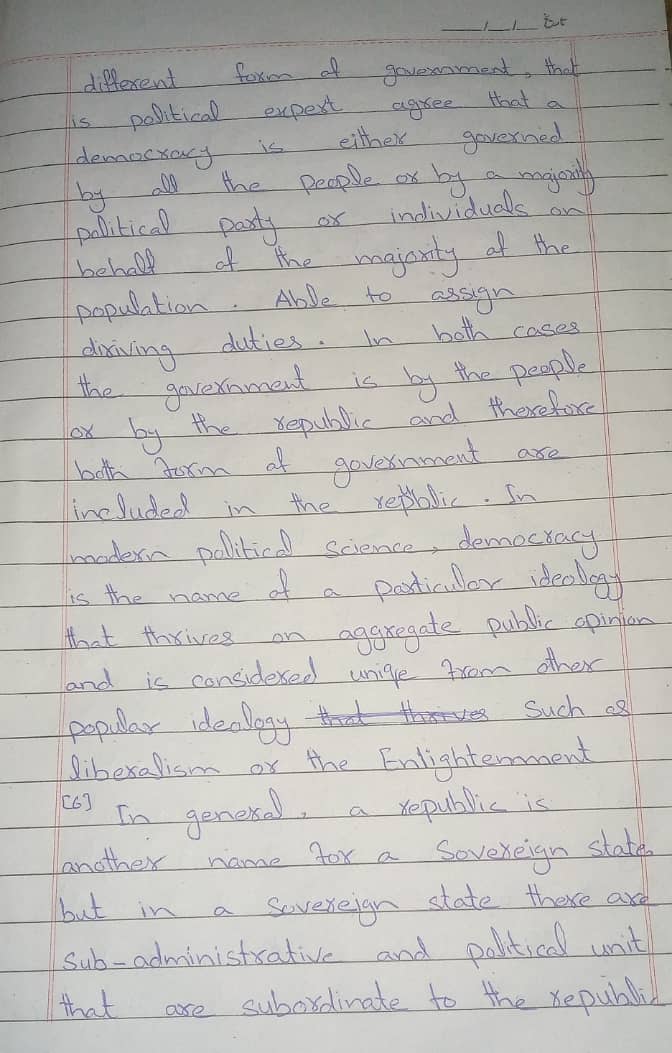 different form of government, that
is political expert agree that a
democracy is either governed
by all the people or by a majority
political party or individuals on
behalf of the majority of the
population. Able to assign
diriving duties. In both cases
the government is by the people
or by the republic and therefore
both form of government are
included in the repblic. In
modern political science, democracy
is the name of a particular ideology
that thrives on aggregate public opinion
and is considered uniqe from other
popular ideology that thrives such as
liberalism or the Enlightenment
[6] In general, a republic is
another name for a Sovereign state,
but in a Sovereign state there are
sub-administrative and political unit
that are subordinate to the republic